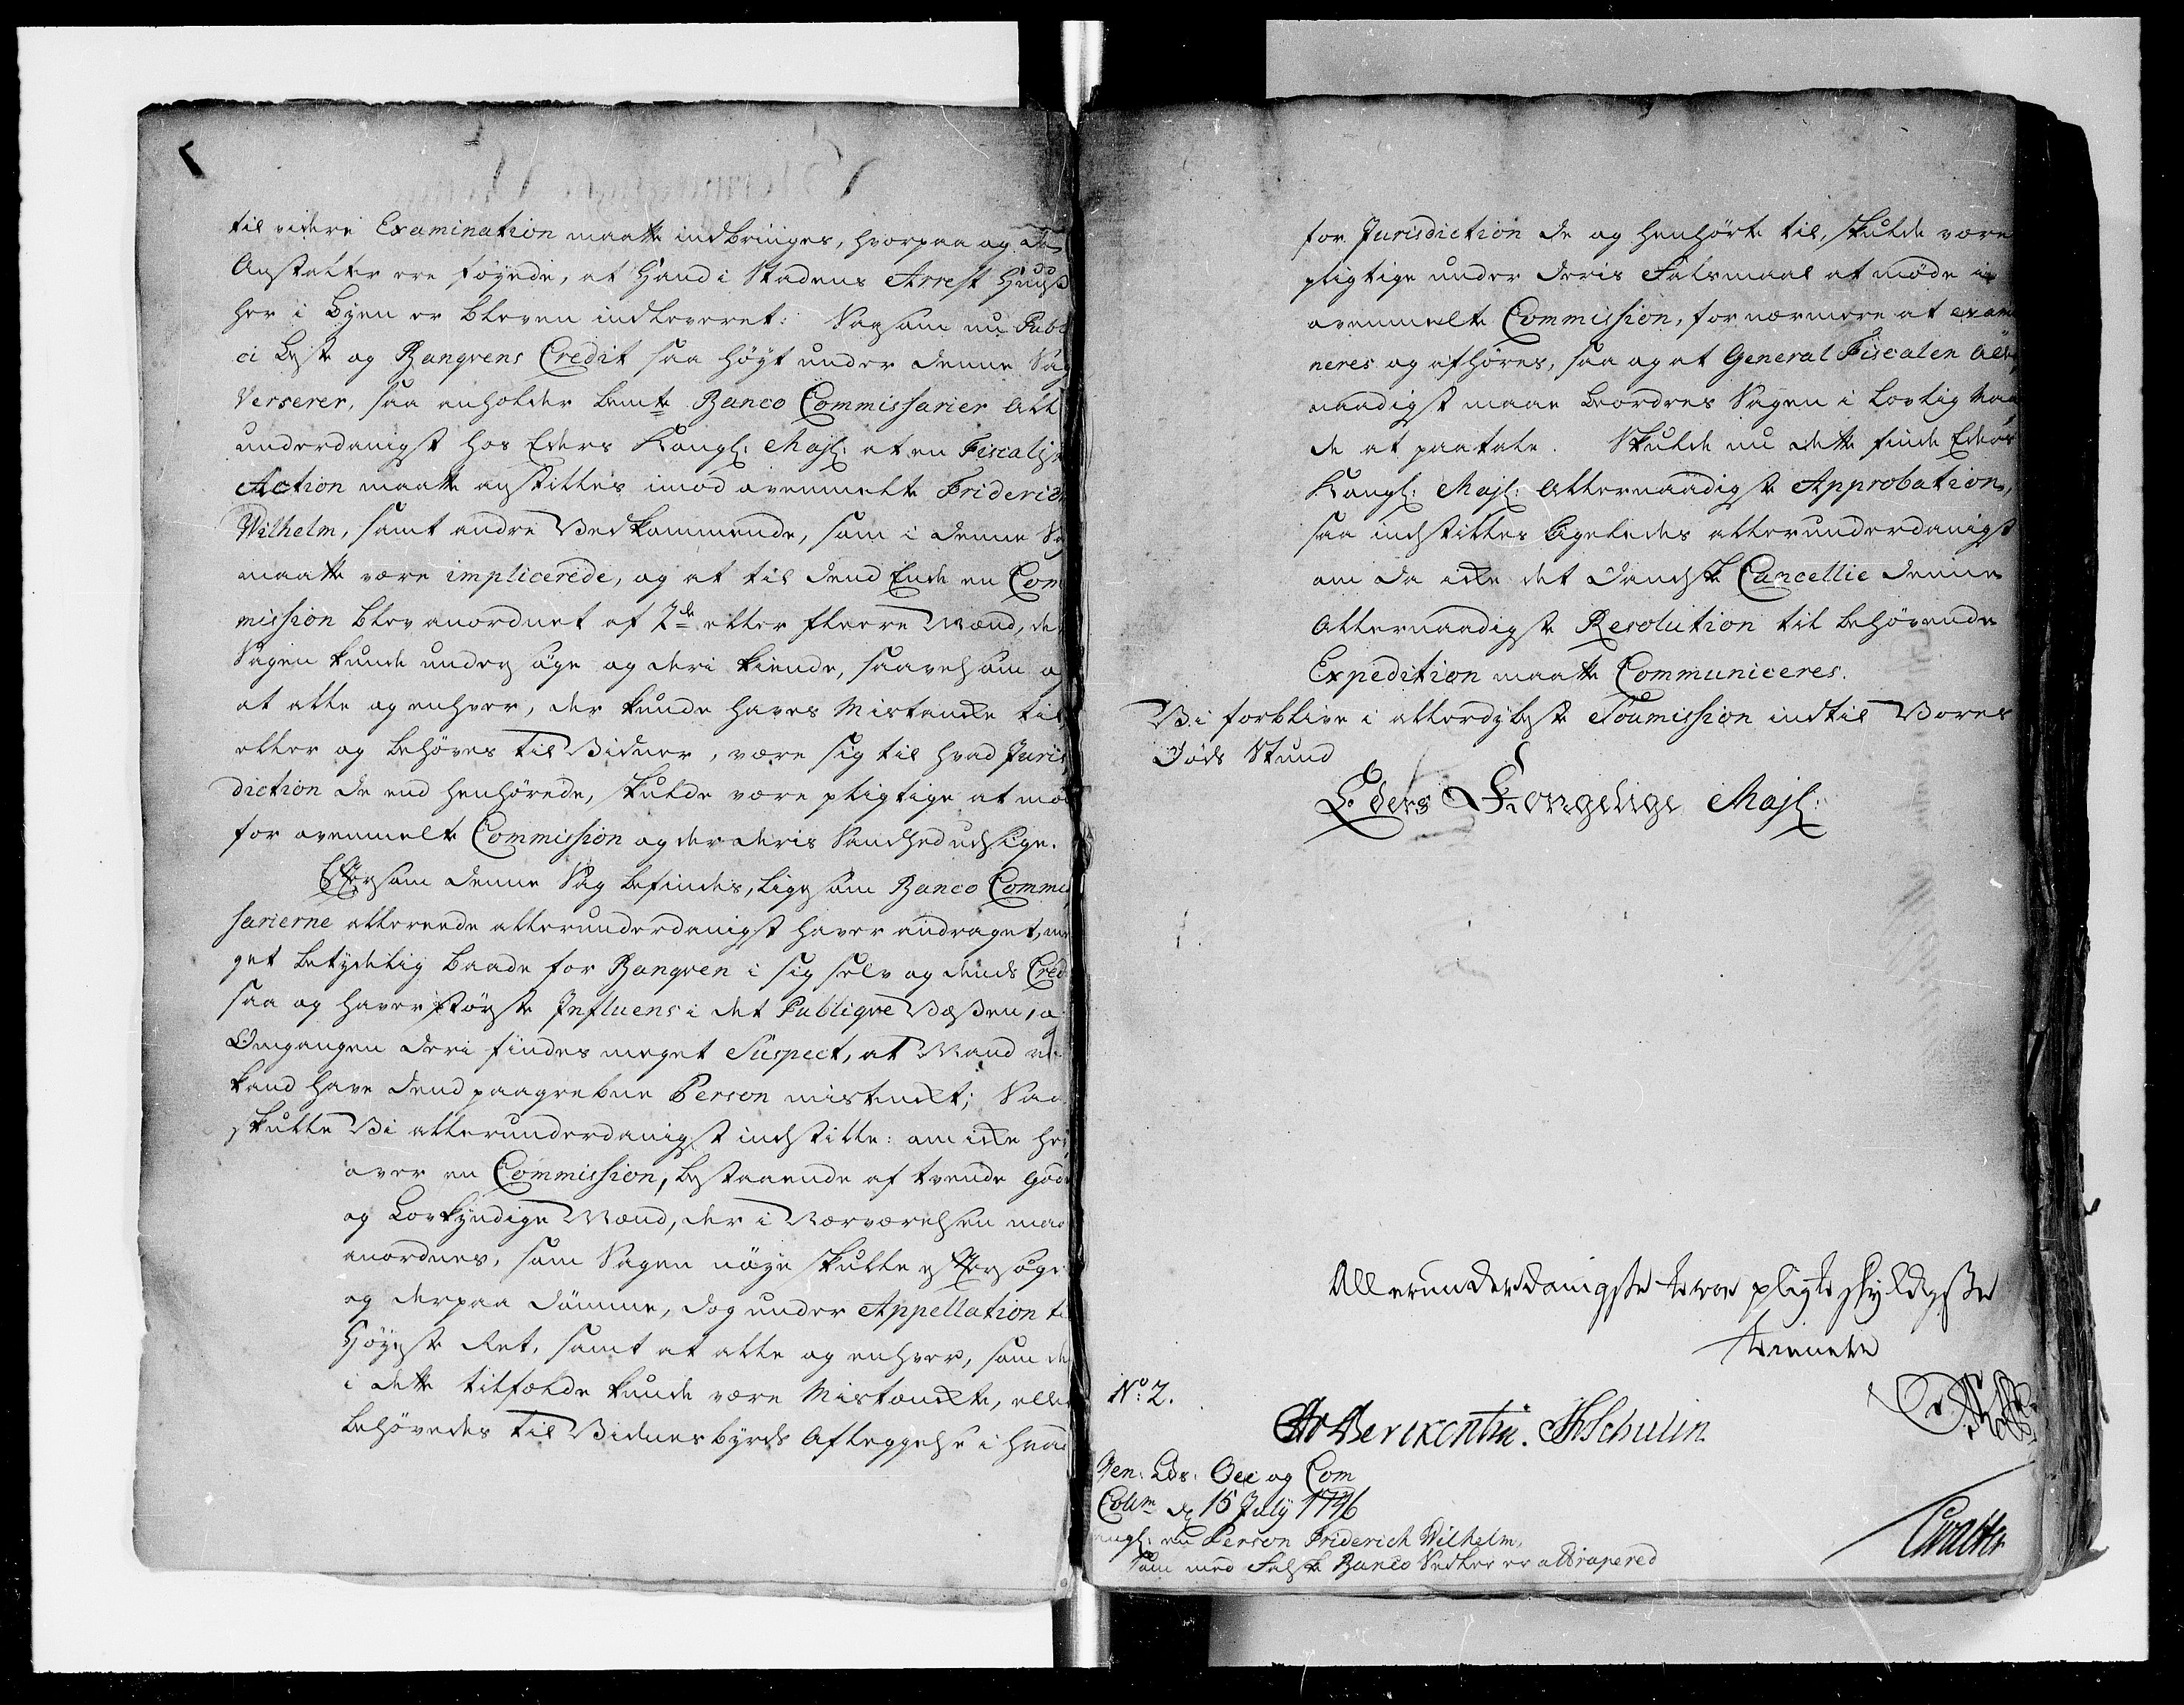 til videre Examination maatte indbringes, hvorpaa og de
Anstalter ere føyede, at Hand i Stadens Arrest Huus
her i Byen er bleven indleveret: Saasom nu Publi
ci beste og Banqvens Credit saa høyt under denne Sag
Verserer, saa anholder bemte Banco Commissarier Aller
underdanigst hos Eders Kongl: Majst: at en Fiscalisk
Action maatte anstilles imod ovenmelte Friderich
Wilhelm, samt andre Vedkommende, som i denne Sag
maatte være implicerede, og at til dend Ende en Com
mission blev anordnet af 2de eller fleere Mænd, der
Sagen kunde undersøge og deri kiende, saavelsom og
at alle og enhver, der kunde haves Mistanke til
eller og behøves til Vidner, være sig til hvad Juris
diction de end henhørede, skulde være pligtige at møde
for ovenmelte Commission og der deris Sandhed udsige.
Eftersom denne Sag befindes, ligesom Banco Commis
sarierne allereede allerunderdanigst haver andraget, me
get betydelig baade for Banqven i sig selv og dends Credit
saa og haver største Influens i det Publiqve Væsen, og
Omgangen deri findes meget Suspect, at Mand vel
kand have dend paagrebne Person mistenkt; Saa
skulle Vi allerunderdanigst indstille: om ikke her
over en Commission, bestaaende af tvende gode
og Lovkyndige Mænd, der i Nærværelsen maatte
anordnes, som Sagen nøye skulle eftersøge
og derpaa dømme, dog under Appellation til
Høyeste Ret, samt at alle og enhver, som der
i dette tilfælde kunde være Mistænkte, eller
behøvedes til Vidnesbyrds Afleggelse i hvad
for Jurisdiction de og henhørte til, skulde være
pligtige under deris Falsmaal at møde i
ovenmelte Commission, for nærmere at exami
neres og afhøres, saa og at General Fiscalen Aller
naadigst maae beordres Sagen i lovlig Maa
de at paatale. Skulde nu dette finde Eders
Kongl: Majst: Allernaadigste Approbation,
saa indstilles ligeledes allerunderdanigst
om da ikke det Danske Cancellie denne
Allernaadigste Resolution til behøvende
Expedition maatte Communiceres.
Vi forblive i allerdybeste Soumission indtil Vores
Døds Stund
Eders Kongelige Majst:
Allerunderdanigste troe pligtskyldigste
tienere
No: 2.
Berckentin. JSchulin
Gen: Lds: Oec og Com
Coll<sup>m</sup> d 15 July 1746
angl: en Person Friderich Wilhelm,
Som med Falske Banco Sedler er attraperet